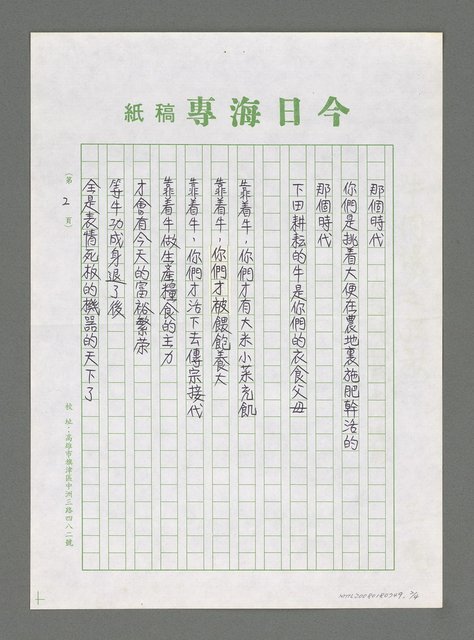 今日海專稿紙
那個時代
你們是挑着大便在農地裏施肥幹活的
那個時代
下田耕耘的牛是你們的衣食父母
靠着牛，你們才有大米小菜充飢
靠着牛，你們才被餵飽養大
靠着牛，你們才活下去傳宗接代
靠着牛做生產糧食的主力
才會有今天的富裕繁荣
等牛功成身退了後
全是表情死板的機器的天下了
（第2頁）
校址：高雄市旗津區中洲三路四八二號
NMTL20080180749. 2/4